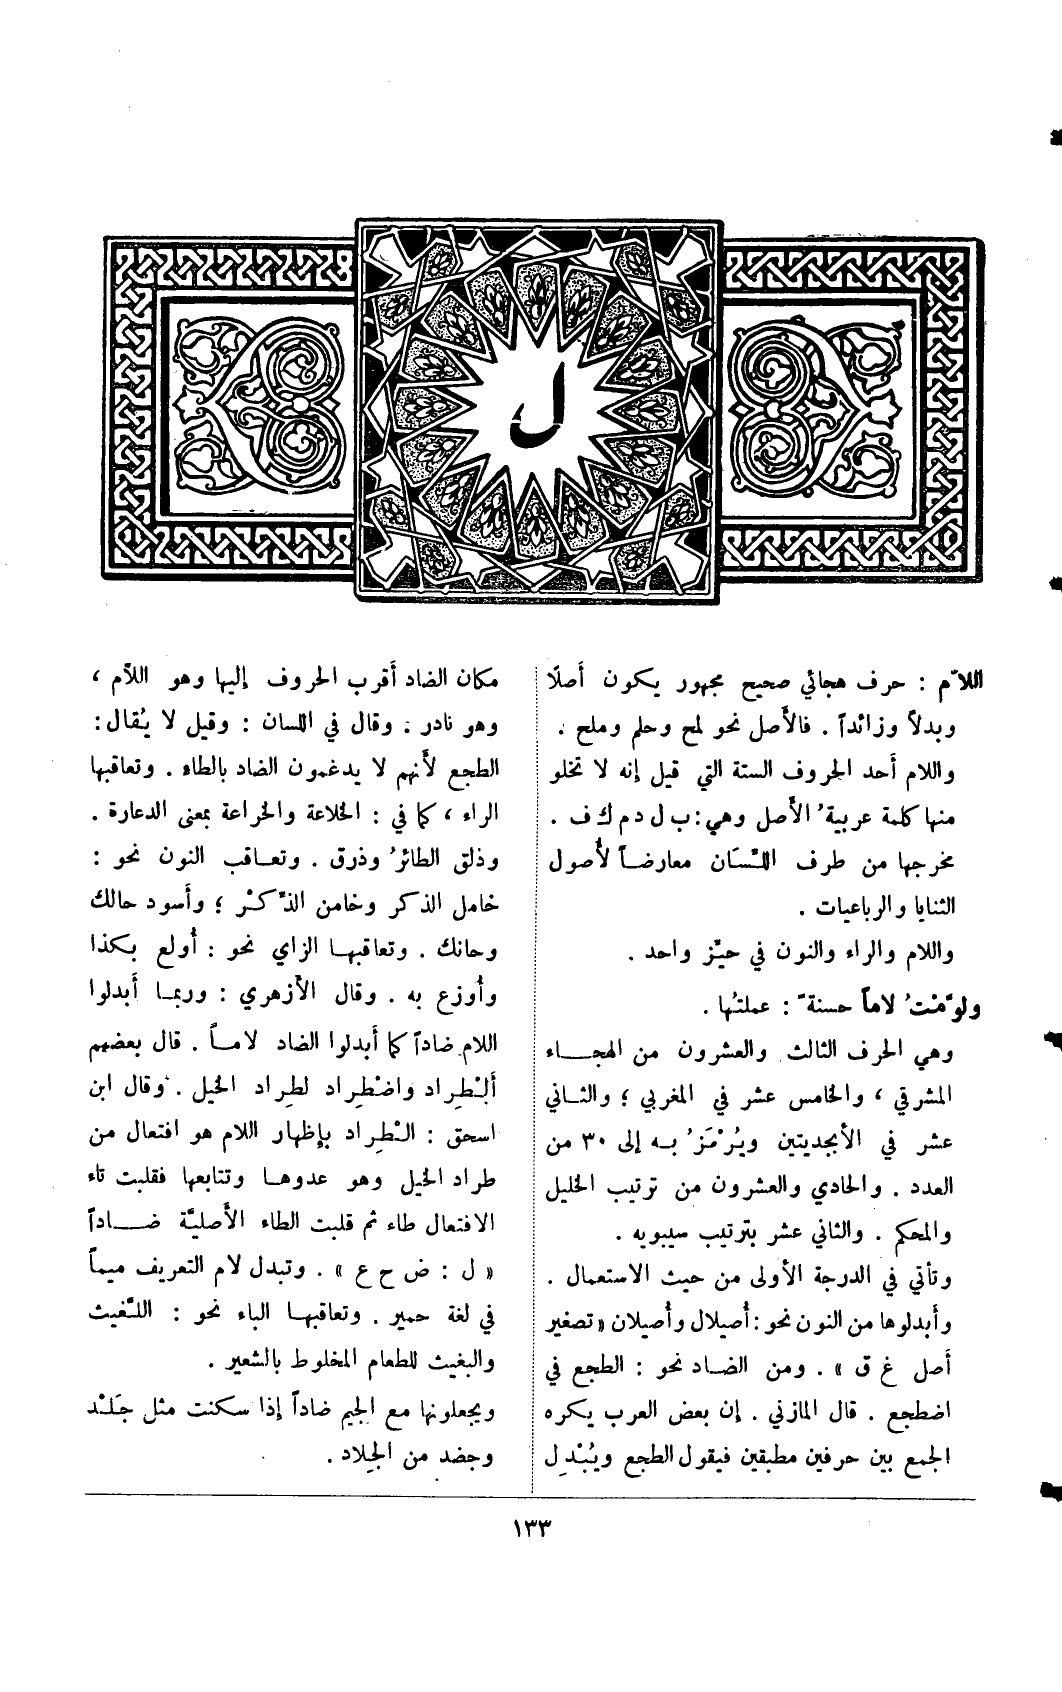 ل
اللاّم : حرف هجائي صحيح مجهور يكون أصلًا
وبدلاً وزائداً . فالأصل نحو لمح وحلم وملح .
واللام أحد الحروف الستة التي قيل إنه لا تخلو
منها كلمة عربية ُ الأصل وهي : ب ل د م ك ف .
مخرجها من طرف اللسَّان معارضاً لأصول
الثنايا والرباعيات .
واللام والراء والنون في حيّز واحد .
ولوّمْتُ لاماً حسنةً : عملتُها .
وهي الحرف الثالث والعشرون من الهجاء
المشرقي ، والخامس عشر في المغربي ؛ والثاني
عشر في الأبجديتين ويُرْمَزُ به إلى ٣٠ من
العدد . والحادي والعشرون من ترتيب الخليل
والمحكم . والثاني عشر بترتيب سيبويه .
وتأتي في الدرجة الأولى من حيث الاستعمال .
وأبدلوها من النون نحو : أُصيلال وأُصيلان « تصغير
أصل غ ق » . ومن الضاد نحو : الطجع في
اضطجع . قال المازني . إن بعض العرب يكره
الجمع بين حرفين مطبقين فيقول الطجع ويُبْدِل
مكان الضاد أقرب الحروف إليها وهو اللاّم ،
وهو نادر . وقال في اللسان : وقيل لا يُقال :
الطجع لأنهم لا يدغمون الضاد بالطاء . وتعاقبها
الراء ، كما في : الخلاعة والخراعة بمعنى الدعارة .
وذلق الطائرُ وذرق . وتعاقب النون نحو :
خامل الذكر وخامن الذّكْر ؛ وأسود حالك
وحانك . وتعاقبها الزاي نحو : أُولع بكذا
وأُوزع به . وقال الأزهري : وربما أبدلوا
اللام ضاداً كما أبدلوا الضاد لاماً . قال بعضهم
ألْطِراد واضْطِراد لطِراد الخيل . وقال ابن
اسحق : الْطِراد بإظهار اللام هو افتعال من
طراد الخيل وهو عدوها وتتابعها فقلبت تاء
الافتعال طاء ثم قلبت الطاء الأصليّة ضاداً
« ل : ض ح ع » . وتبدل لام التعريف ميماً
في لغة حمير . وتعاقبها الباء نحو : اللّغيث
والبغيث للطعام المخلوط بالشعير .
ويجعلونها مع الجيم ضاداً إذا سكنت مثل جَلْد
وجضد من الجلاد .
١٣٣